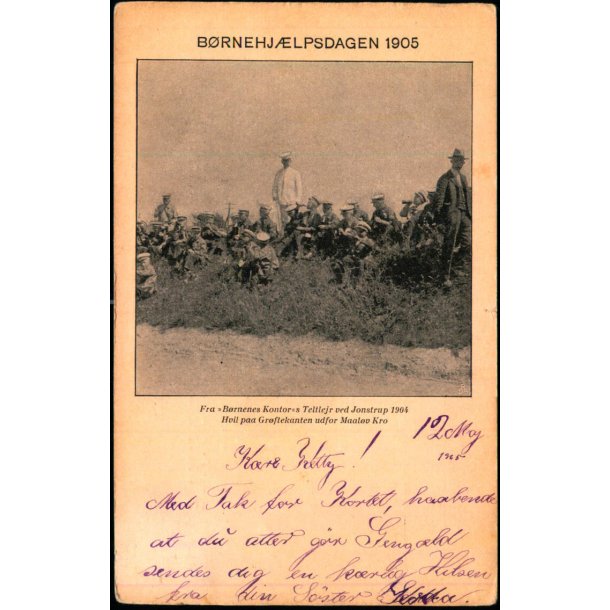 BØRNEHJÆLPSDAGEN 1905
Fra »Børnenes Kontor«s Teltlejr ved Jonstrup 1904
Hvil paa Grøftekanten udfor Maaløv Kro
12 Maj
1905
Kære Kitty!
Med Tak for Kortet, haabende
at du atter gör Gengæld
sendes dig en kærlig Hilsen
fra din Söster